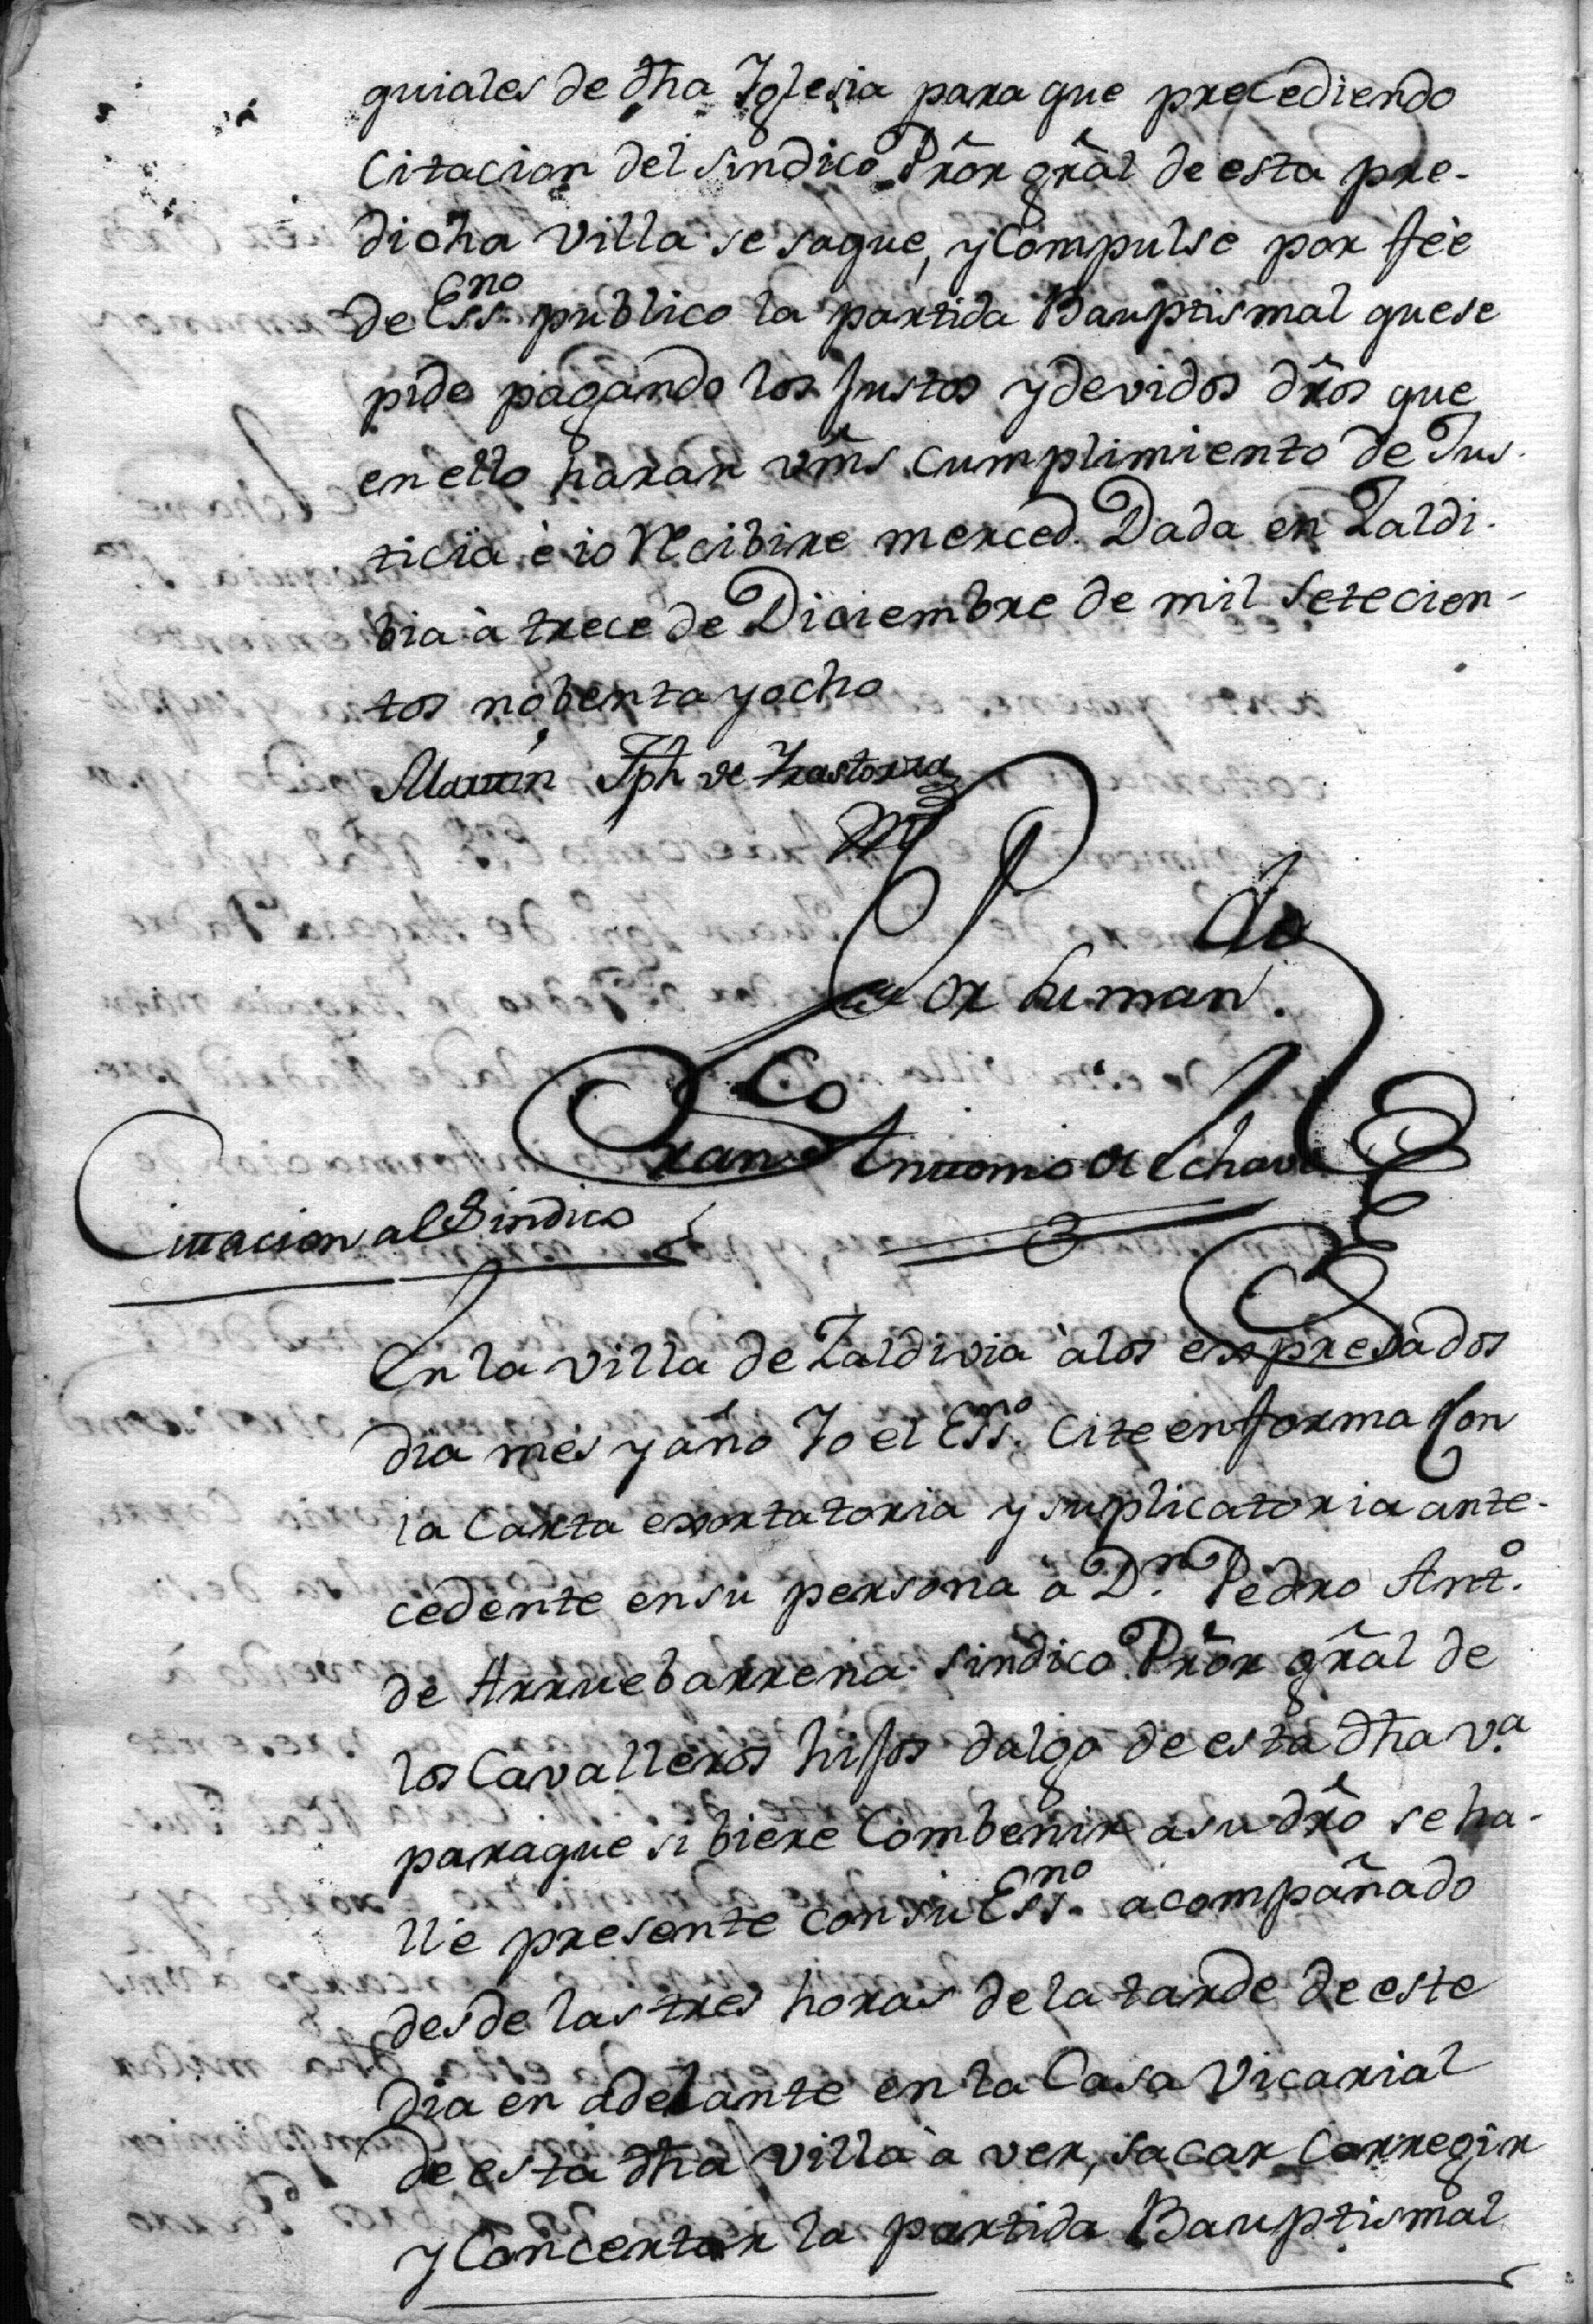 quiales de dha Iglesia para que precediendo
Citacion del Sindico Prõr grãl de esta pre-
dicha villa se saque, y Compulse por fèe
de Essno publico la partida Bauptismal quese
pide pagando los Justos y devidos drõs que
en ello haran vm̃s cumplimiento de Jus-
ticia è io Recibire merced. Dada en Zaldi-
bia à trece de Diciembre de mil setecien-
tos nobenta y ocho
Martin Jph de Irastorza
Por su mando
Franco Antonio de Echave
Citacion al Sindico
En la villa de Zaldivia à los expresados
dia mes y año Yo el Essno. Cite en forma Con
la Carta exortatoria y suplicatoria ante-
cedente en su persona à Dn. Pedro Anto.
de Arruebarrena Sindico Prõr grãl de
los Cavalleros hijos dalgo de esta dha va.
paraque si biere Combenir a su drõ se ha-
lle presente con su Essno. acompañado
desde las tres horas de la tarde de este
dia en adelante en la Casa Vicarial
de esta dha villa à ver, sacar Corregir
y Concertar la partida Bauptismal